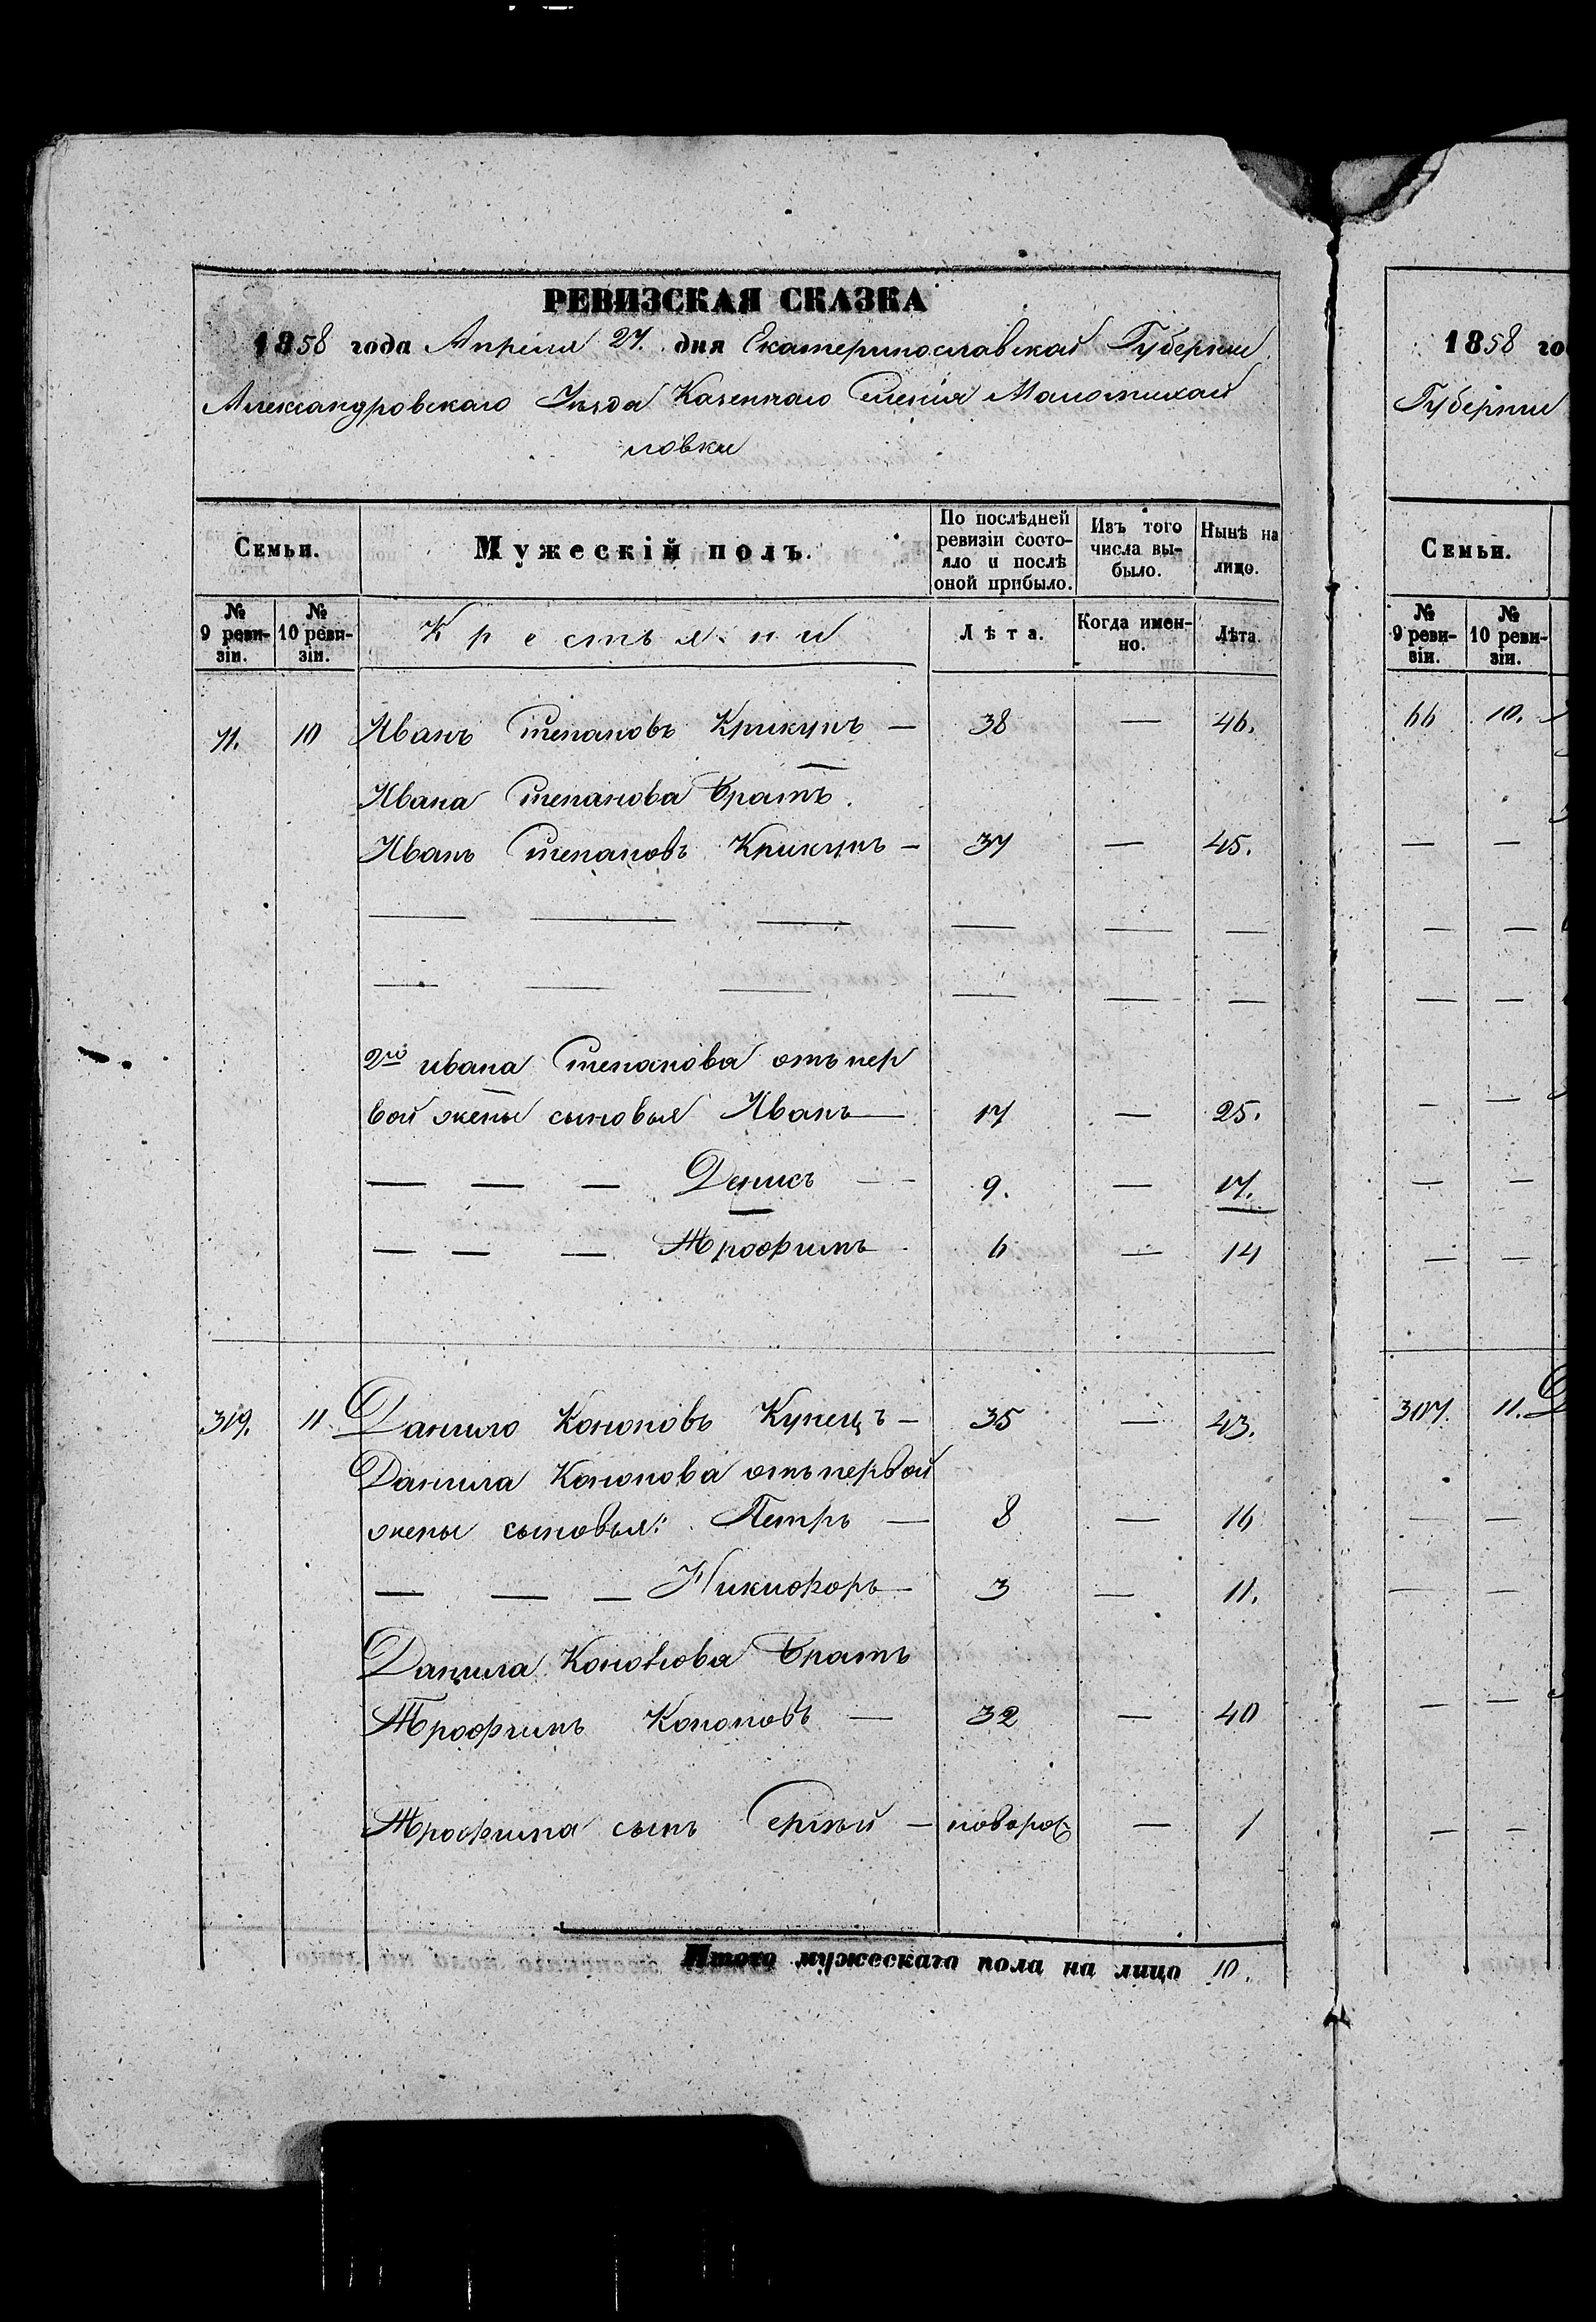 РЕВИЗСКАЯ СКАЗКА
1858 года Апреля 27. дня Екатеринославской Губернии
Александровскаго Уезда Казеннаго Селенія Маломихай
ловки
Семьи.
Мужескій полъ.
По послѣдней ревизіи состояло и послѣ оной прибыло.
Изъ того числа вы-было.
Нынѣ на лицо.
№ 9 реви-зіи.
№ 10 реви-зіи.
Крестьяни
Лѣта.
Когда имен-но.
Лѣта.
11. 10 Иванъ Степановъ Крикунъ — 38 — 46.
Ивана Степанова братъ.
Иванъ Степановъ Крикунъ — 37 — 45.
— — — — — —
— — — — — —
2го ивана Степанова отъ пер
вой жены сыновья Иванъ — 17 — 25.
— — — Денисъ — 9. — 17.
— — — Трофимъ 6 — 14
319. 11 Данило Кононовъ Купецъ — 35 — 43.
Данила Кононова отъ первой
жены сыновья: Петръ — 8 — 16
— — — Никифоръ — 3 — 11.
Данила Кононова братъ
Трофимъ Кононовъ — 32 — 40
Трофима сынъ Сергѣй — новорож — 1
Итого мужескаго пола на лицо 10.
1858 го
Губернии
Семьи.
№ 9 реви-зіи.
№ 10 реви-зіи.
66 10.
307. 11.